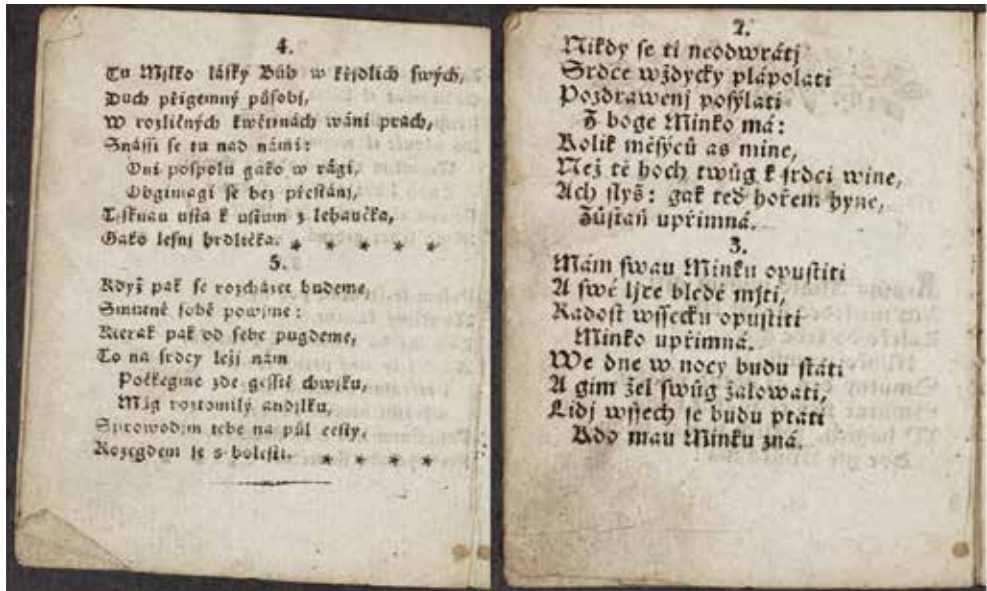 4.
Tu Milko lásky Bůh w křjdlich swých,
Duch přigemný působj,
W rozličných kwětinách wánj prach,
Snássj se tu nad námi:
Oni pospolu gako w rági,
Obgimagj se bez přestánj,
Tisknau usta k ustum z lehaučka,
Gako lesnj hrdlička. * * * * *
5.
Když pak se rozcházet budeme,
Smutně sobě powjme:
Kterak pak od sebe pugdeme,
To na srdcy ležj nám
Počkegme zde gesstě chwilku,
Můg roztomilý andjlku,
Sprowodjm tebe na půl cesty,
Rozegdem se s bolestj. * * * *
2.
Nikdy se ti neodwrátj
Srdce wždycky plápolati
Pozdrawenj posýlati
Z boge Minko má:
Kolik měsýců as mine,
Než tě hoch twůg k srdci wine,
Ach slyš: gak teď hořem hyne,
Zůstaň upřimná.
3.
Mám swau Minku opustiti
A swé ljce bledé mjti,
Radost wssecku opustiti
Minko upřimná.
We dne w nocy budu státi
A gim žel swůg žalowati,
Lidj wssech se budu ptáti
Kdo mau Minku zná.